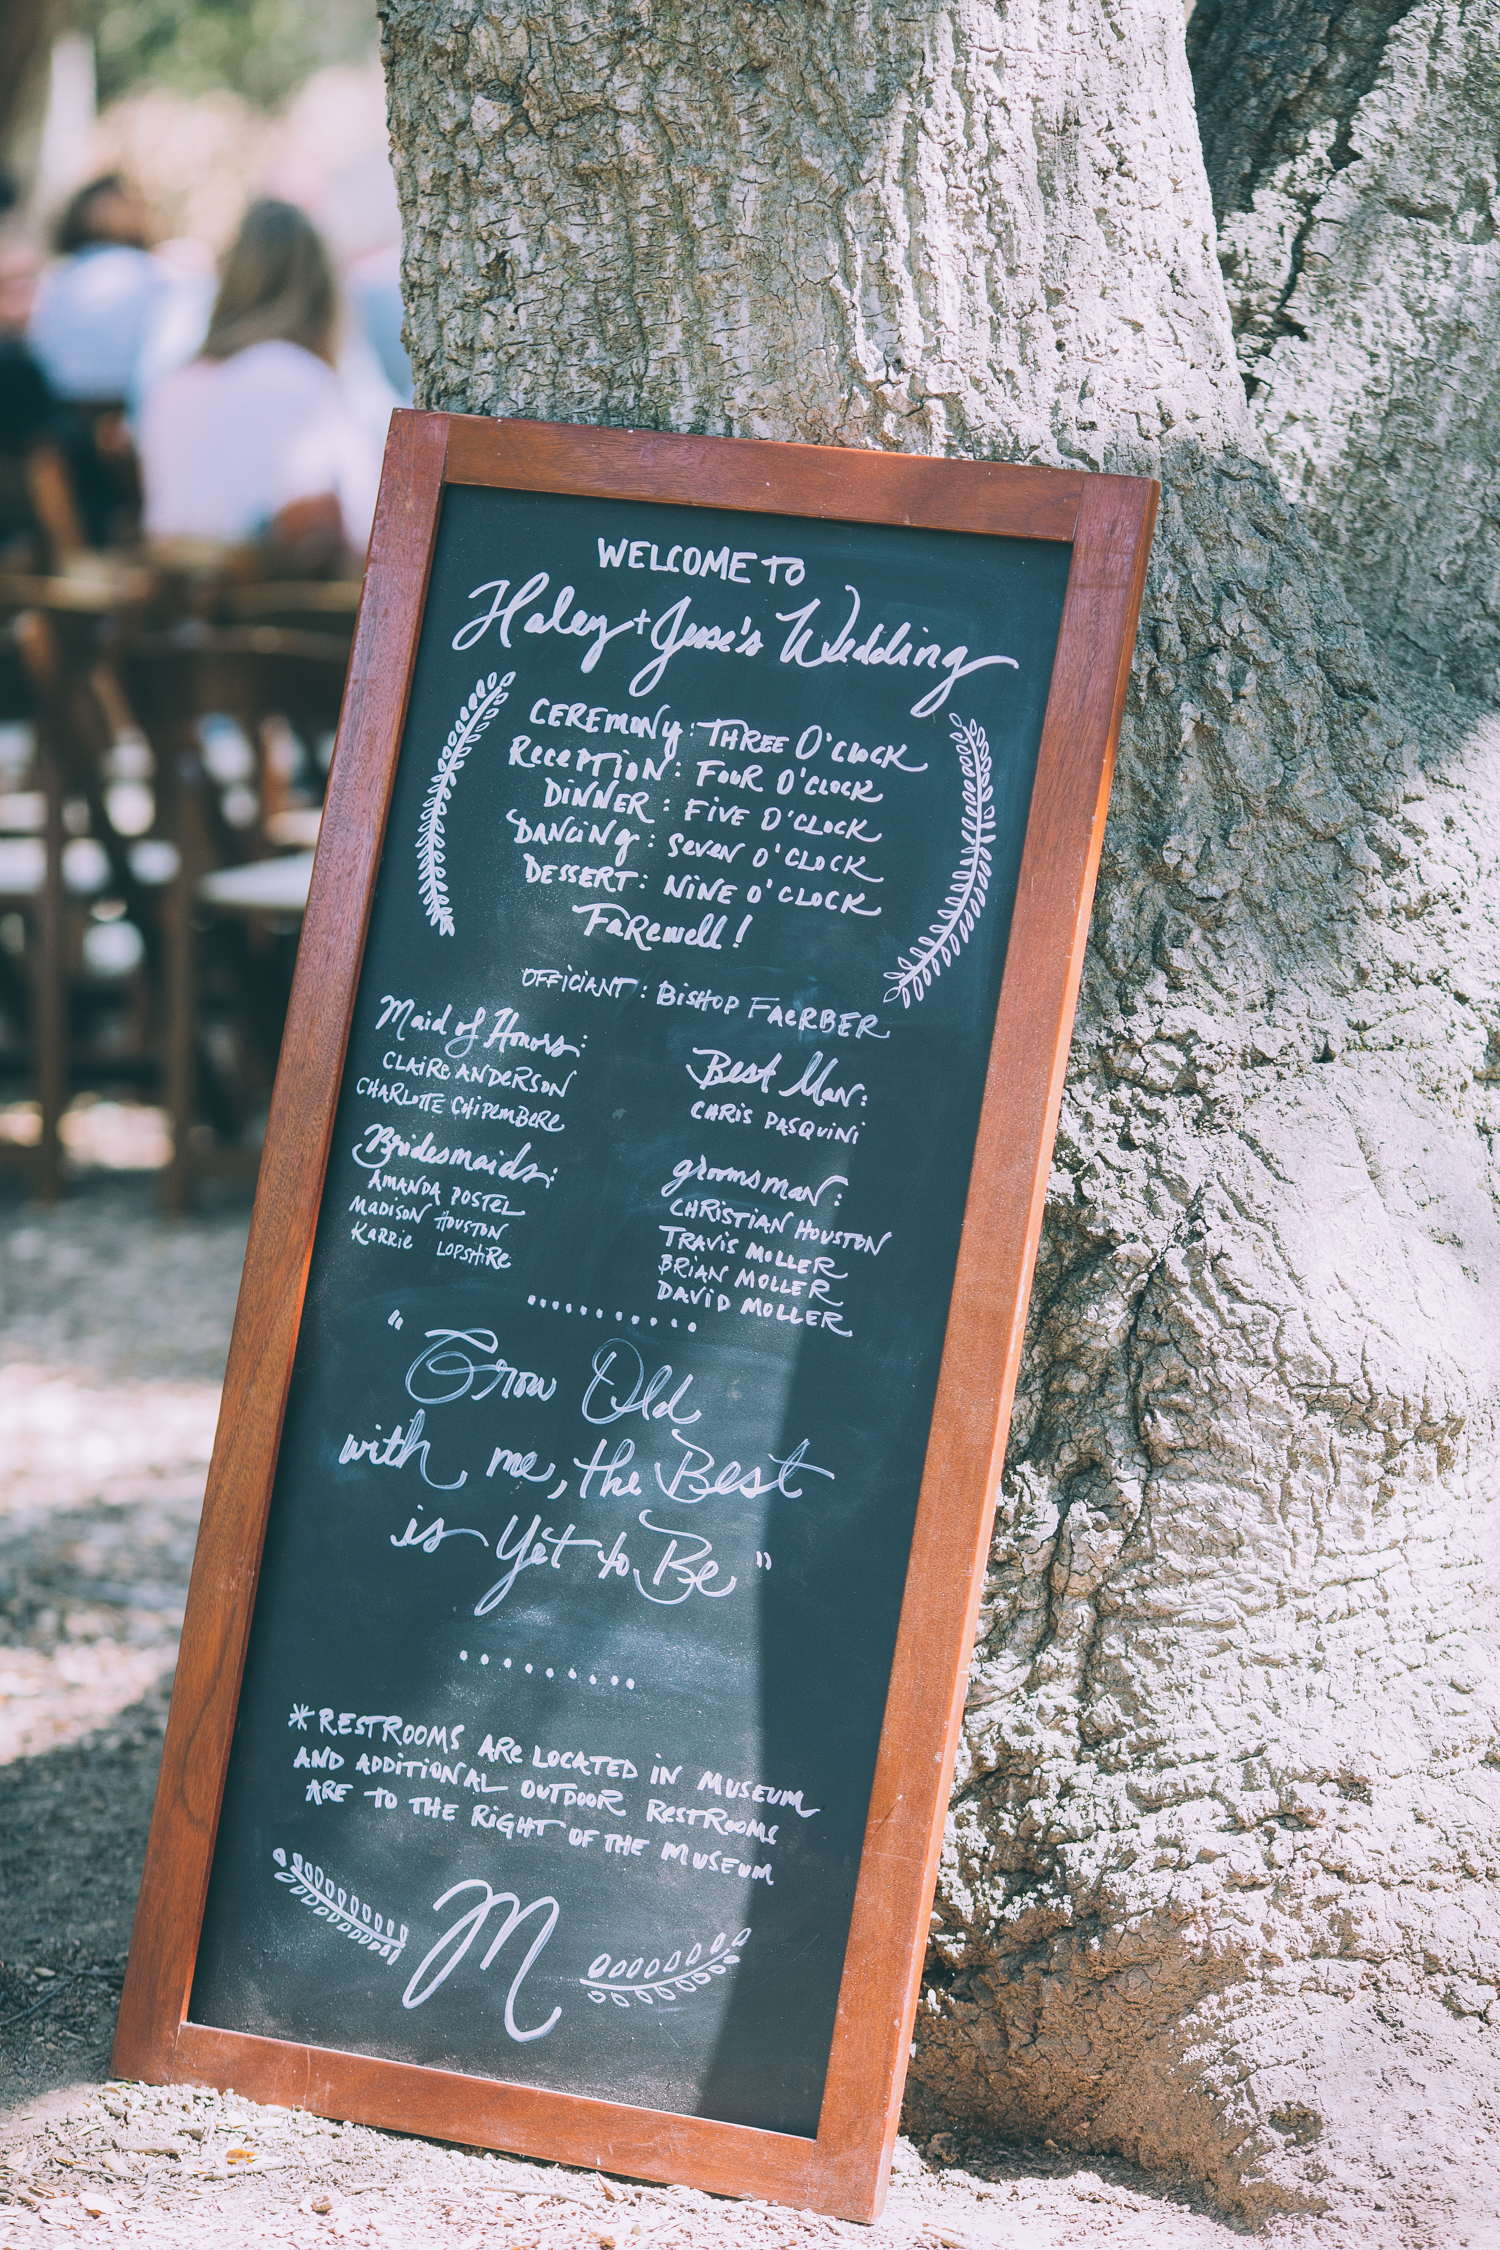 WELCOME TO
Haley + Jesse's Wedding
CEREMONY: THREE O'CLOCK
RECEPTION: FOUR O'CLOCK
DINNER: FIVE O'CLOCK
DANCING: SEVEN O'CLOCK
DESSERT: NINE O'CLOCK
FAREWELL!
OFFICIANT: BISHOP FAERBER
Maid of Honors:
CLAIRE ANDERSON
CHARLOTTE CHIPEMBERE
Bridesmaids:
AMANDA POSTEL
MADISON HOUSTON
KARRIE LOPSHIRE
Best Man:
CHRIS PASQUINI
groomsman:
CHRISTIAN HOUSTON
TRAVIS MOLLER
BRIAN MOLLER
DAVID MOLLER
"Grow Old
with me, the Best
is Yet to Be"
*RESTROOMS ARE LOCATED IN MUSEUM
AND ADDITIONAL OUTDOOR RESTROOMS
ARE TO THE RIGHT OF THE MUSEUM
M